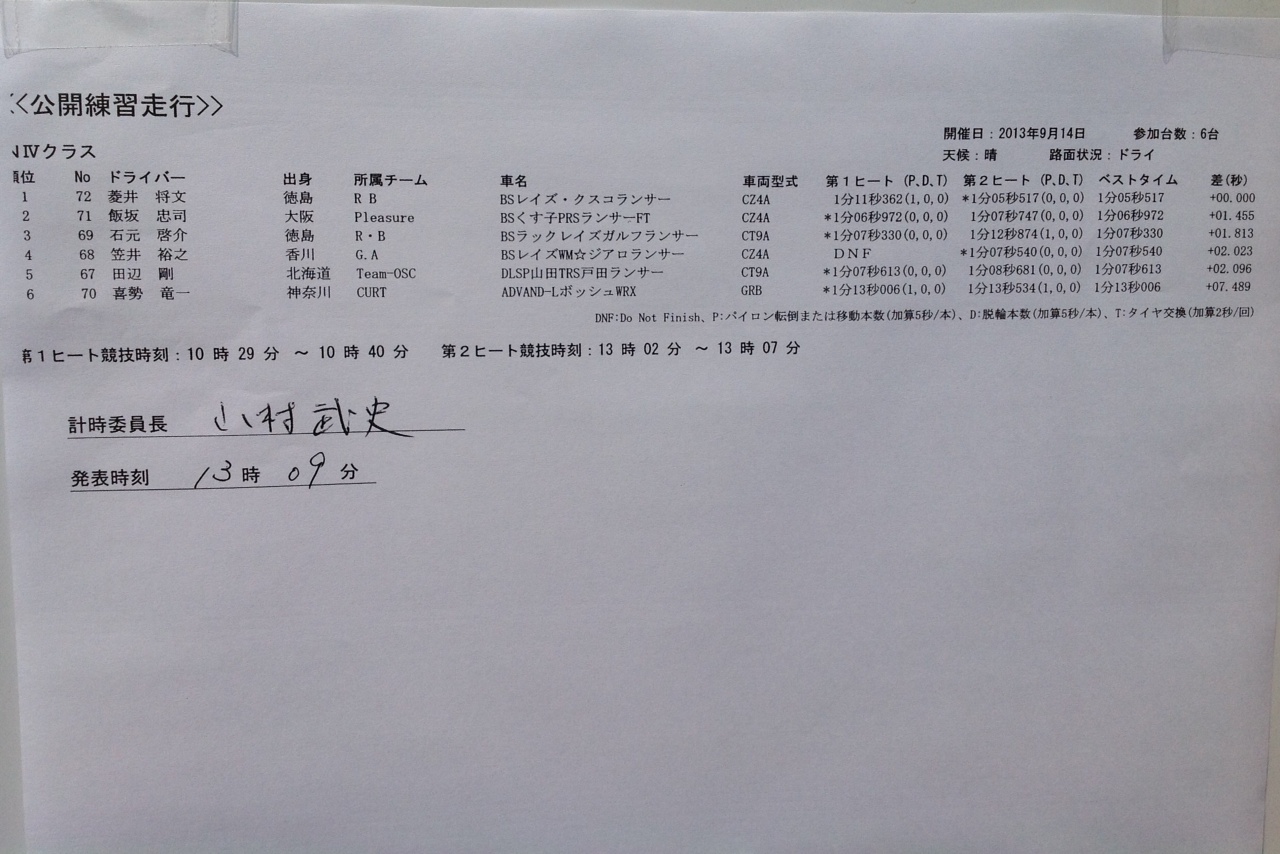 <<公開練習走行>>
開催日：2013年9月14日 参加台数：6台
NⅣクラス 天候：晴 路面状況：ドライ
順位 No ドライバー 出身 所属チーム 車名 車両型式 第１ヒート (P、D、T) 第２ヒート (P、D、T) ベストタイム 差(秒)
1 72 菱井 将文 徳島 R B BSレイズ・クスコランサー CZ4A 1分11秒362(1,0,0) *1分05秒517(0,0,0) 1分05秒517 +00.000
2 71 飯坂 忠司 大阪 Pleasure BSくす子PRSランサーFT CZ4A *1分06秒972(0,0,0) 1分07秒747(0,0,0) 1分06秒972 +01.455
3 69 石元 啓介 徳島 R・B BSラックレイズガルフランサー CT9A *1分07秒330(0,0,0) 1分12秒874(1,0,0) 1分07秒330 +01.813
4 68 笠井 裕之 香川 G.A BSレイズWM☆ジアロランサー CZ4A DNF *1分07秒540(0,0,0) 1分07秒540 +02.023
5 67 田辺 剛 北海道 Team-OSC DLSP山田TRS戸田ランサー CT9A *1分07秒613(0,0,0) 1分08秒681(0,0,0) 1分07秒613 +02.096
6 70 喜勢 竜一 神奈川 CURT ADVAND-LボッシュWRX GRB *1分13秒006(1,0,0) 1分13秒534(1,0,0) 1分13秒006 +07.489
DNF:Do Not Finish、P:パイロン転倒または移動本数(加算5秒/本)、D:脱輪本数(加算5秒/本)、T:タイヤ交換(加算2秒/回)
第１ヒート競技時刻：10 時 29 分 ～ 10 時 40 分 第２ヒート競技時刻：13 時 02 分 ～ 13 時 07 分
計時委員長 山村 武史
発表時刻 13 時 09 分